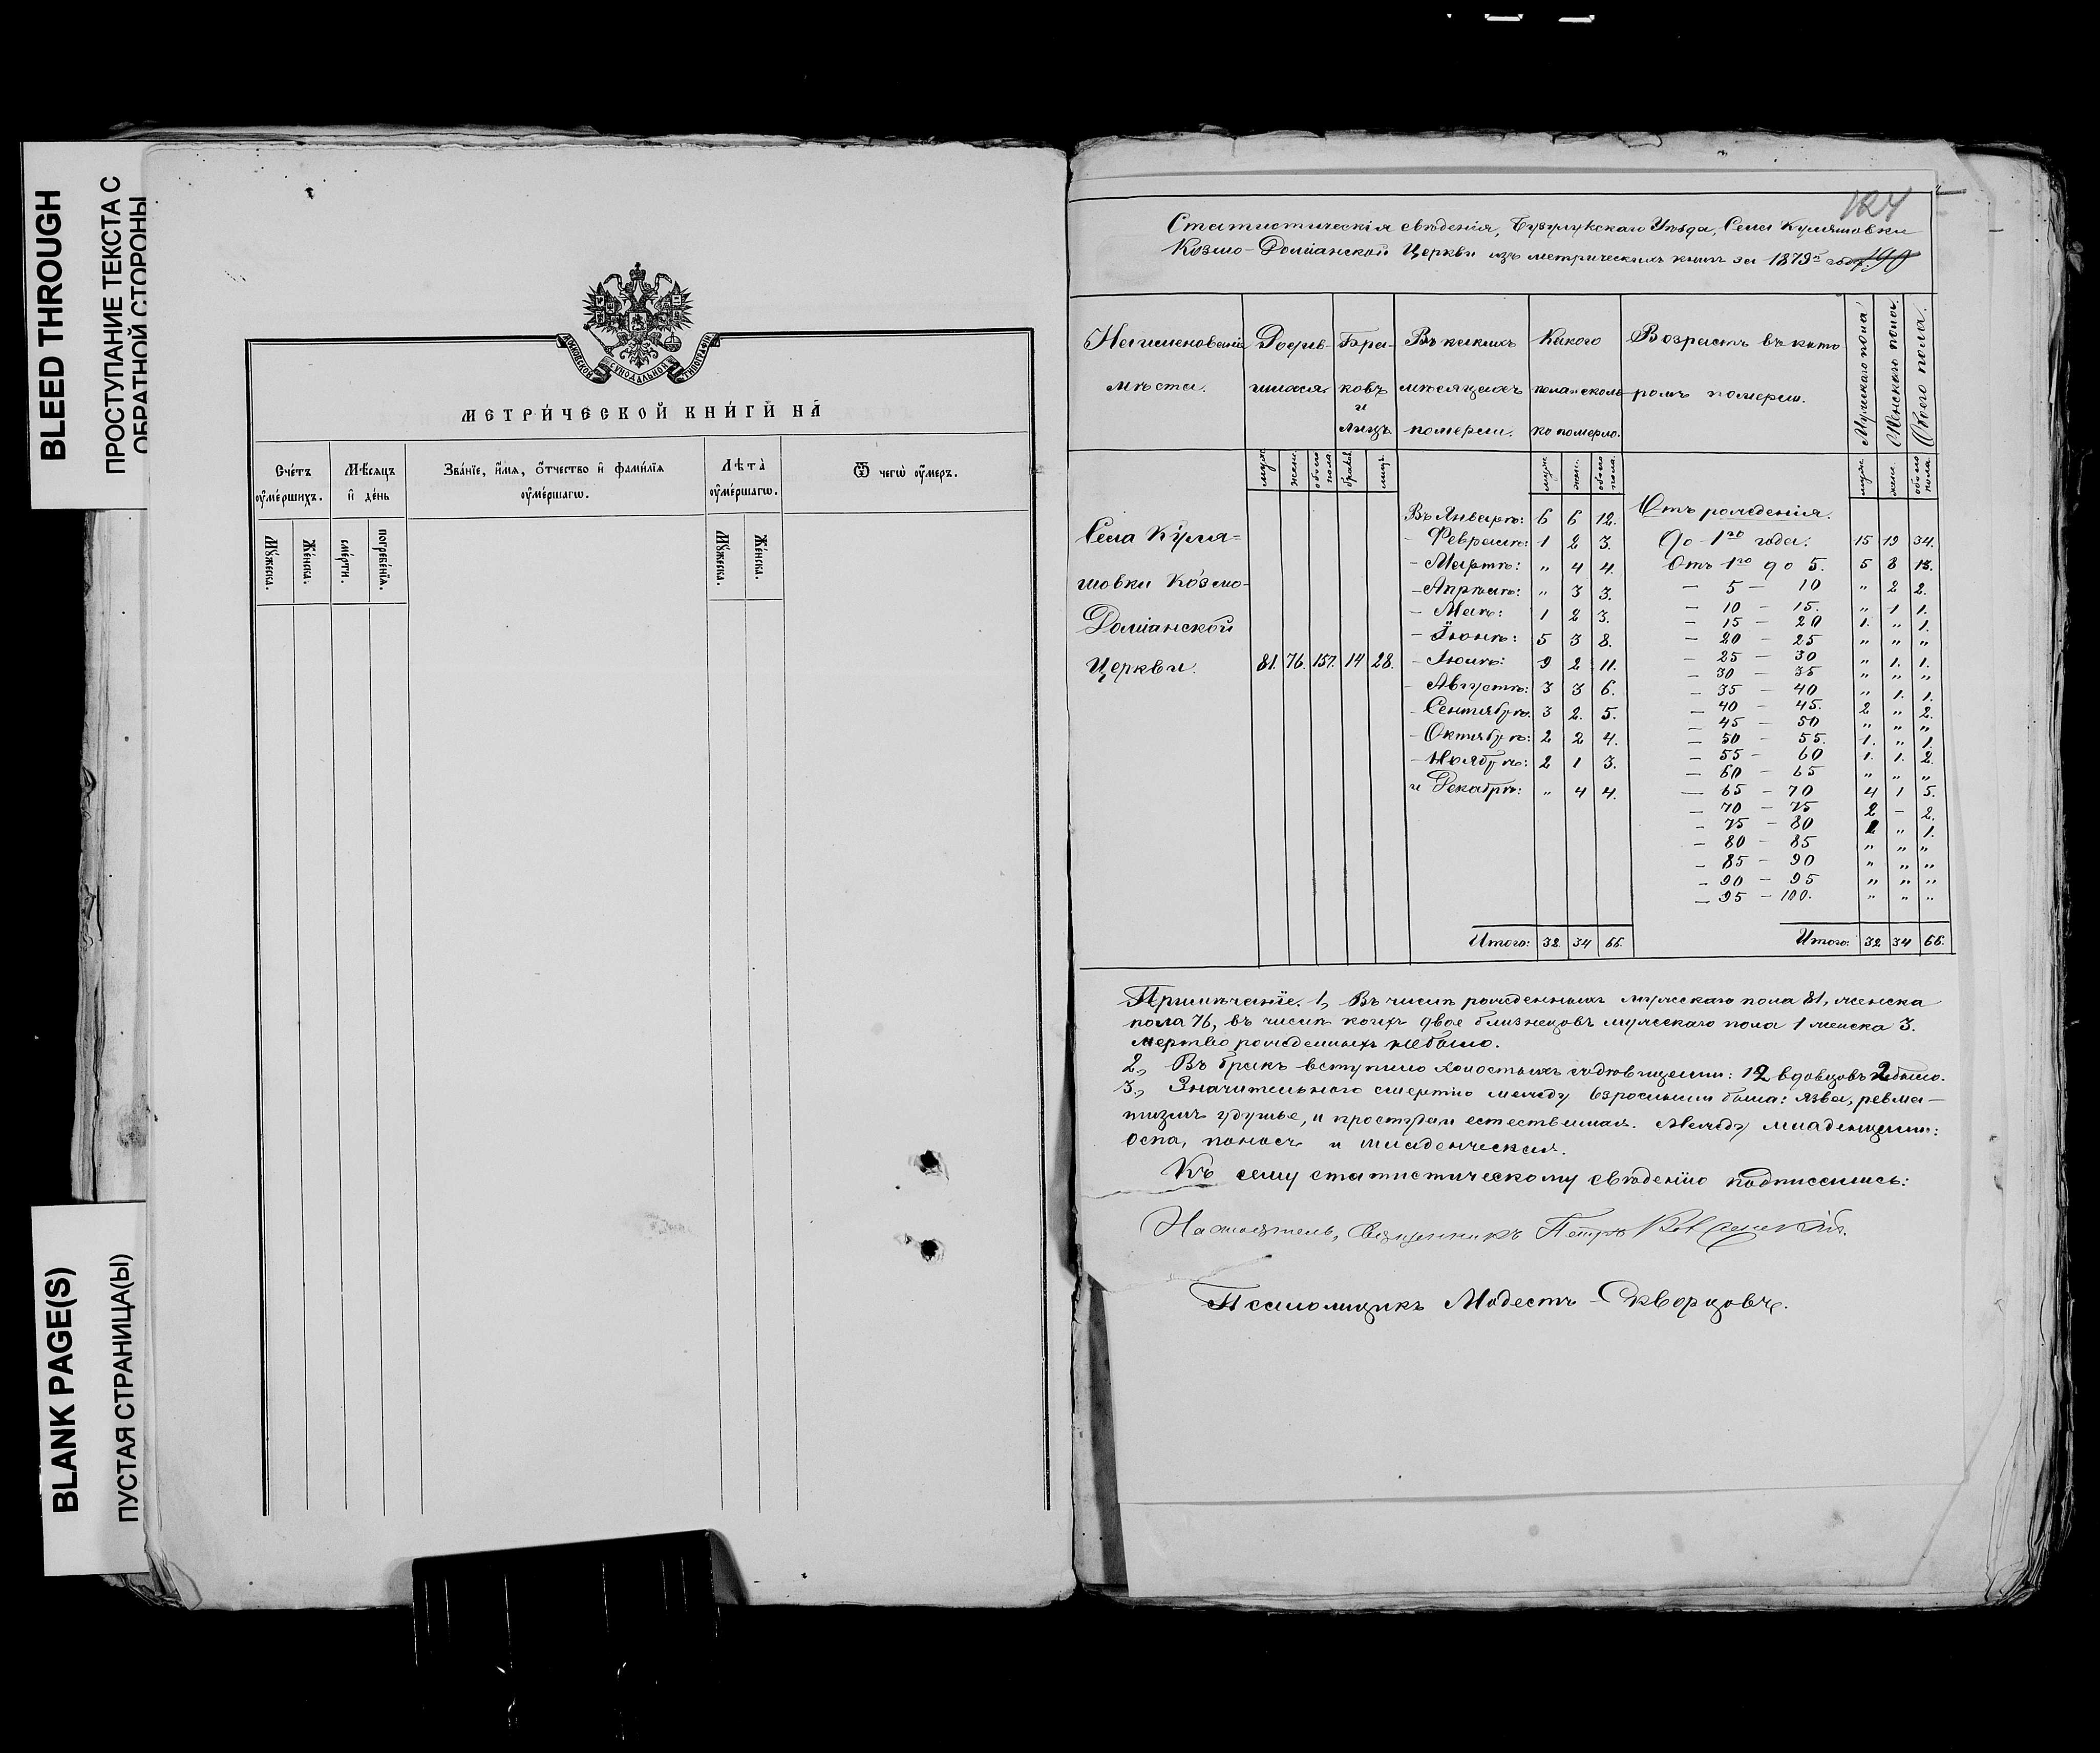 BLEED THROUGH
ПРОСТУПАНИЕ ТЕКСТА С
ОБРАТНОЙ СТОРОНЫ
BLANK PAGE(S)
ПУСТАЯ СТРАНИЦА(Ы)
МОСКОВСКОЙ СѴНОДАЛЬНОЙ ТИПОГРАФІИ
МЕТРИ́ЧЕСКОЙ КНИ́ГИ НА̀
Сче́тъ ᲂу҆ме́ршихъ.
Мѣ́сяцъ и҆ де́нь
Зва́нїе, и҆́мя, ѻ҆́тчество и҆ фами́лїя ᲂу҆ме́ршагѡ.
Лѣ́та ᲂу҆ме́ршагѡ.
Ѿ чегѡ̀ ᲂу҆́меръ.
Мꙋ́жеска. Же́нска. сме́рти. погребе́нїя. Мꙋ́жеска. Же́нска.
124
Статистическія свѣденія, Бузулукскаго Уѣзда, Села Кулешовки
Козмо-Доміанской Церкви изъ метрическихъ книгъ за 1879й годъ. 190
Наименованіе мѣста.
Родив-шихся
Бра-ковъ и лицъ
Въ какихъ мѣсяцахъ померли.
Какого пола и сколь-ко померло.
Возрастъ въ кото ромъ померли.
Мужскаго пола
Женскаго пола.
Обоего пола.
муж. жен. обоего пола. браков. лицъ. муж. жен. обоего пола. муж. жен. обоего пола.
Села
шовки Козмо-
Доміанской
Церкви. 81. 76. 157. 14 28.
Въ Январѣ: 6 6 12.
- Февралѣ: 1 2 3.
- Мартѣ: „ 4 4.
- Апрѣлѣ: „ 3 3.
- Маѣ: 1 2 3.
- Іюнѣ: 5 3 8.
- Іюлѣ: 9 2 11.
- Августѣ: 3 3 6.
- Сентябрѣ. 3 2. 5.
- Октябрѣ: 2 2 4.
- Ноябрѣ: 2 1 3.
и Декабрѣ: „ 4 4.
Итого: 32 34 66
Отъ рожденія.
До 1го года. 15 19 34.
Отъ 1го до 5. 5 8 13.
— 5 — 10 „ 2 2.
— 10 — 15. „ 1 1.
— 15 — 20 1. „ 1.
— 20 — 25 „ „ „
— 25 — 30 „ 1. 1.
— 30 — 35 „ „ „
— 35 — 40 „ 1. 1.
— 40 — 45. 2 „ 2.
— 45 — 50 „ „ „
— 50 — 55. 1. „ 1.
— 55 — 60 1. 1. 2.
— 60 — 65 „ „ „
— 65 — 70 4 1 5.
— 70 — 75 2 - 2.
— 75 — 80 „ 1.
— 80 — 85 „ „ „
— 85 — 90 „ „ „
— 90 — 95 „ „ „
— 95 — 100. „ „ „
Итого: 32 34 66.
Примѣчаніе. 1, Въ числѣ рожденныхъ мужскаго пола 81, женска
пола 76, въ числѣ коихъ двое близнецовъ мужскаго пола 1 женска 3.
мертво рожденныхъ небыло.
2, Въ бракъ вступило холостыхъ съ дѣвицами: 12 вдовцовъ 2
3, Значительного смертію между взрослыми была: язва, ревма-
тизмъ удушье, и простудаи естественная. Между младенцами:
оспа, поносъ и младенческая.
Къ сему статистическому свѣденію подписались:
Настоятель, Священникъ Петръ
Псаломщикъ Модестъ Скворцовъ.